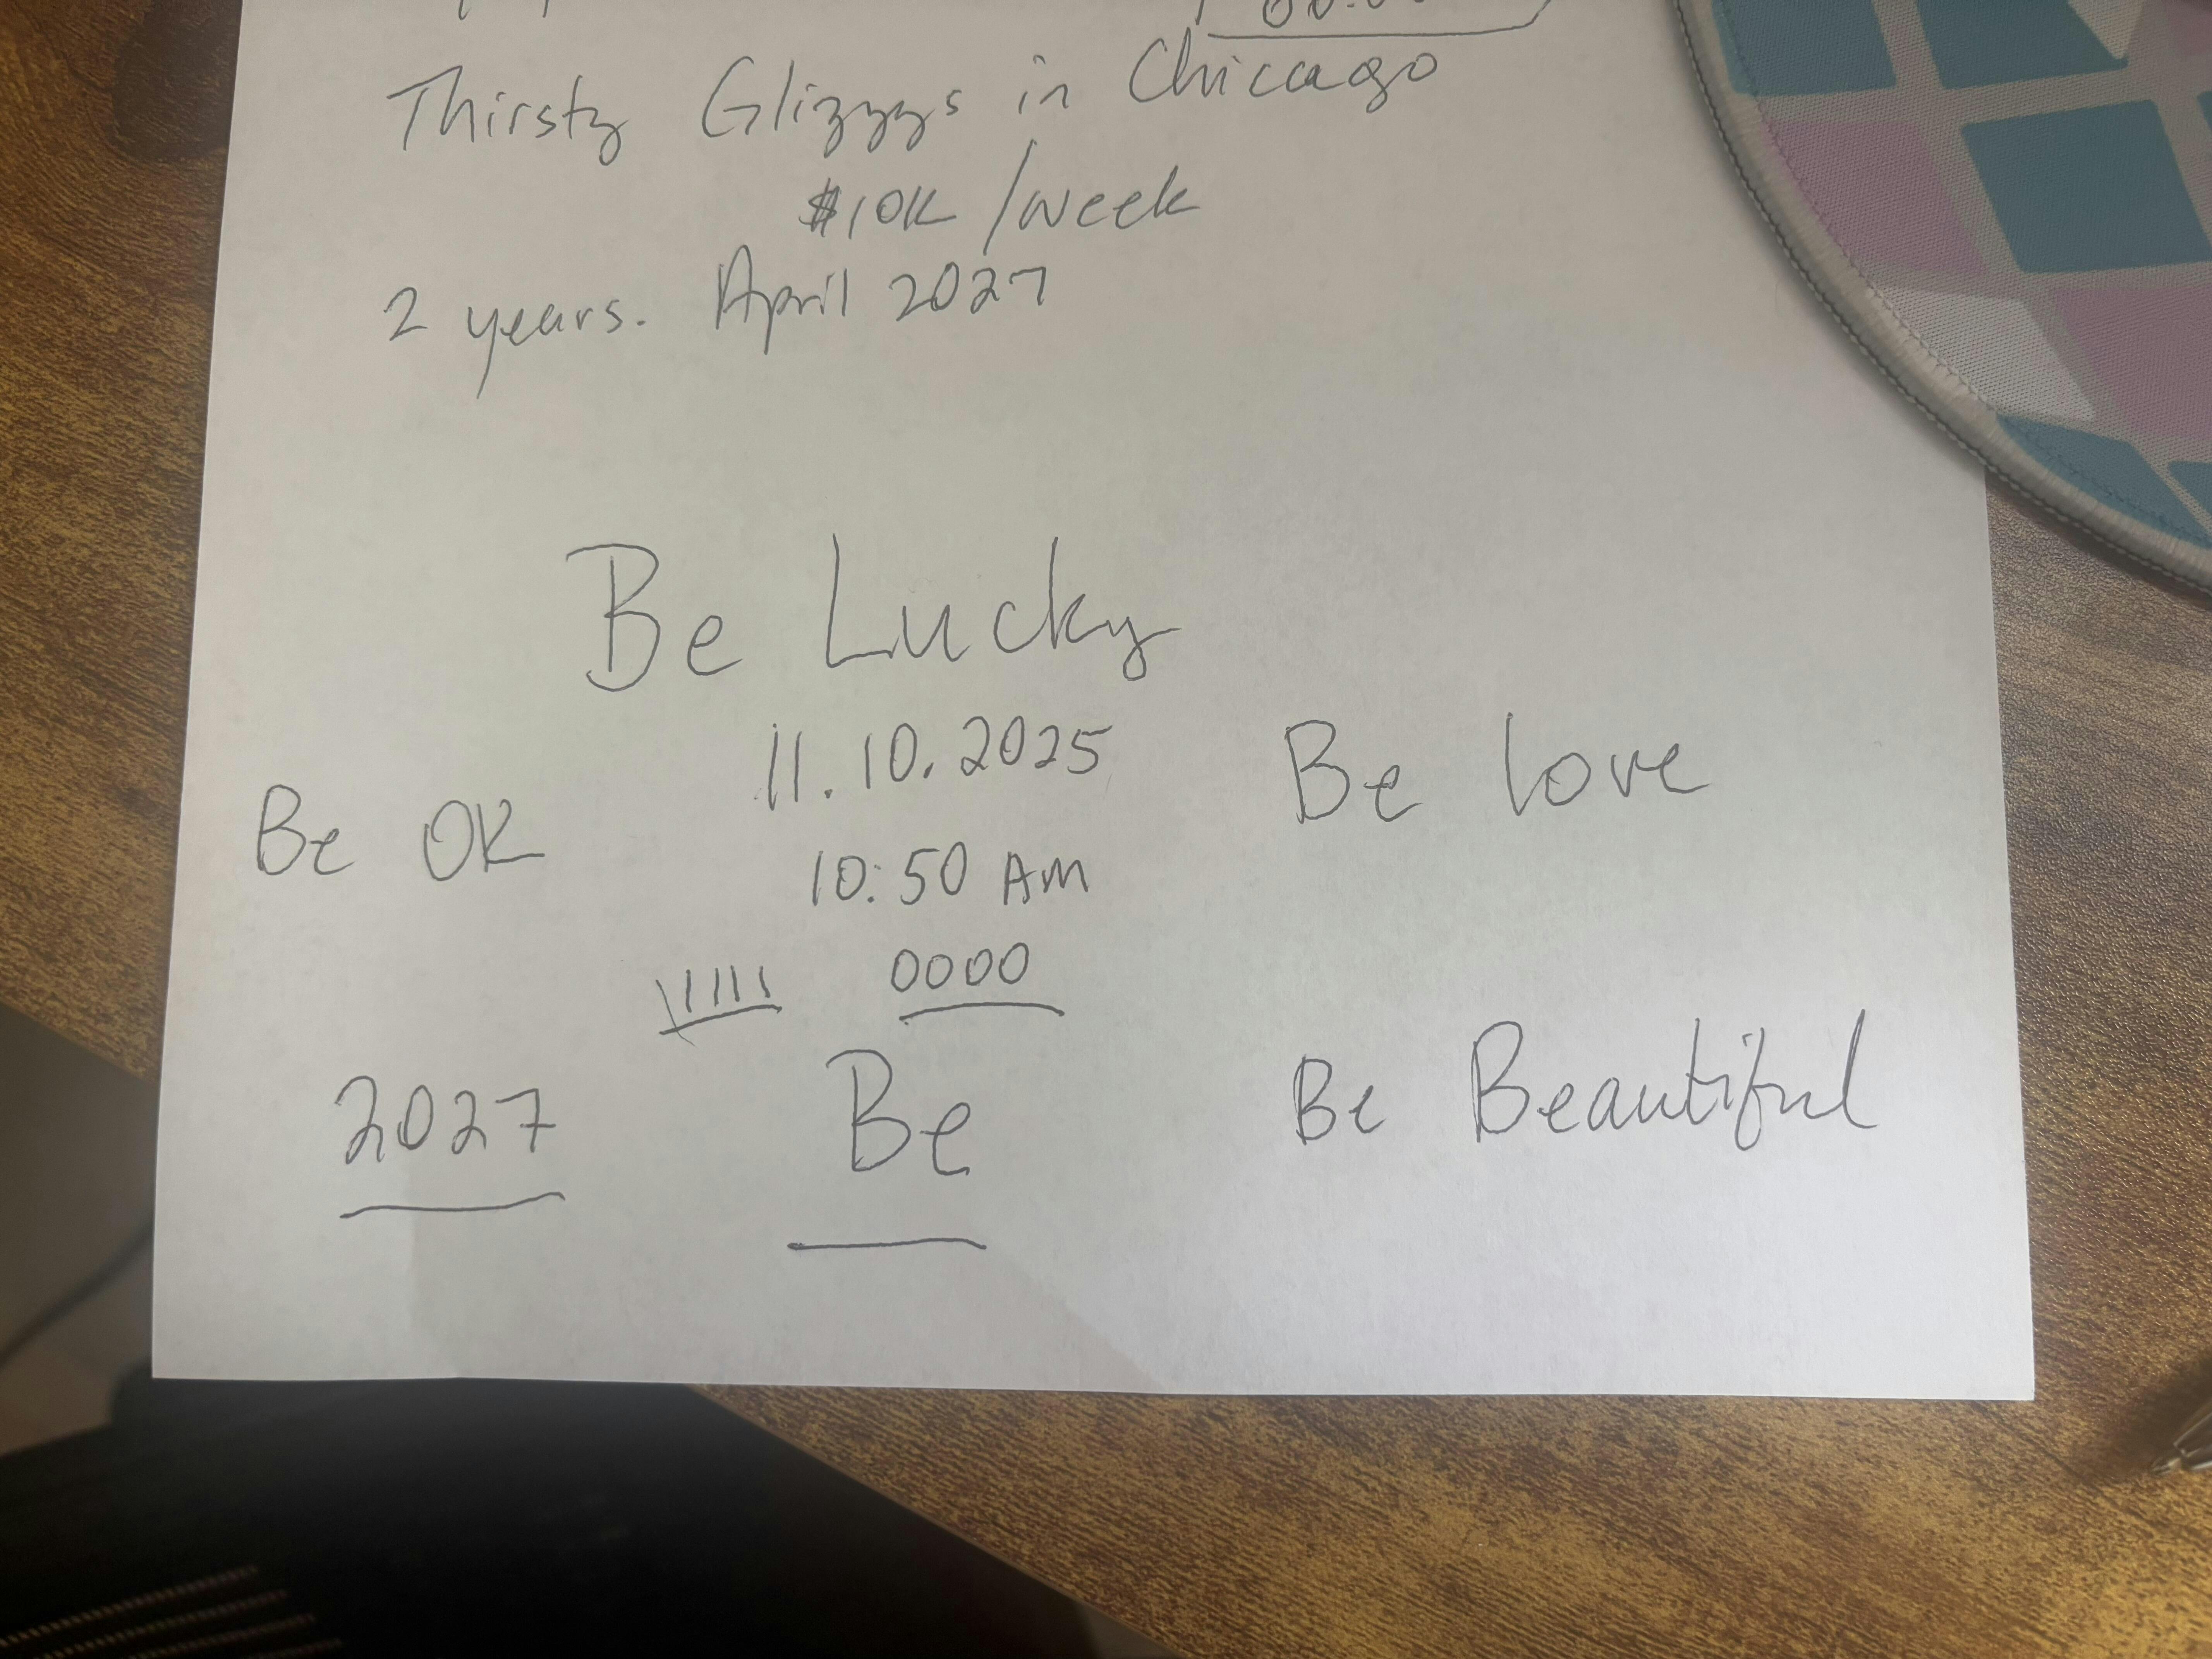 Thirsty Glizzys in Chicago
$10K /week
2 years. April 2027
Be Lucky
11.10.2025
Be love
Be OK
10:50 AM
\|||| 0000
2027
Be
Be Beautiful